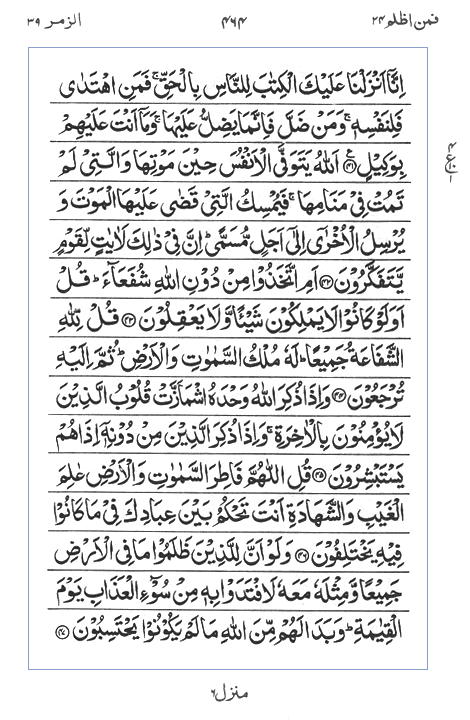 فمن اظلم ۲۴ ۴۶۴ الزمر ۳۹
اِنَّاۤ اَنْزَلْنَا عَلَيْكَ الْكِتٰبَ لِلنَّاسِ بِالْحَقِّ ۚ فَمَنِ اهْتَدٰى
فَلِنَفْسِهٖ ۚ وَمَنْ ضَلَّ فَاِنَّمَا يَضِلُّ عَلَيْهَا ۚ وَمَاۤ اَنْتَ عَلَيْهِمْ
بِوَكِيْلٍ ﴿۴۱﴾ اَللّٰهُ يَتَوَفَّى الْاَنْفُسَ حِيْنَ مَوْتِهَا وَالَّتِيْ لَمْ
تَمُتْ فِيْ مَنَامِهَا ۚ فَيُمْسِكُ الَّتِيْ قَضٰى عَلَيْهَا الْمَوْتَ وَ
يُرْسِلُ الْاُخْرٰۤى اِلٰۤى اَجَلٍ مُّسَمًّى ؕ اِنَّ فِيْ ذٰلِكَ لَاٰيٰتٍ لِّقَوْمٍ
يَّتَفَكَّرُوْنَ ﴿۴۲﴾ اَمِ اتَّخَذُوْا مِنْ دُوْنِ اللّٰهِ شُفَعَآءَ ؕ قُلْ
اَوَلَوْ كَانُوْا لَا يَمْلِكُوْنَ شَيْـًٔا وَّلَا يَعْقِلُوْنَ ﴿۴۳﴾ قُلْ لِّلّٰهِ
الشَّفَاعَةُ جَمِيْعًا ؕ لَهٗ مُلْكُ السَّمٰوٰتِ وَالْاَرْضِ ؕ ثُمَّ اِلَيْهِ
تُرْجَعُوْنَ ﴿۴۴﴾ وَاِذَا ذُكِرَ اللّٰهُ وَحْدَهُ اشْمَاَزَّتْ قُلُوْبُ الَّذِيْنَ
لَا يُؤْمِنُوْنَ بِالْاٰخِرَةِ ۚ وَاِذَا ذُكِرَ الَّذِيْنَ مِنْ دُوْنِهٖۤ اِذَا هُمْ
يَسْتَبْشِرُوْنَ ﴿۴۵﴾ قُلِ اللّٰهُمَّ فَاطِرَ السَّمٰوٰتِ وَالْاَرْضِ عٰلِمَ
الْغَيْبِ وَالشَّهَادَةِ اَنْتَ تَحْكُمُ بَيْنَ عِبَادِكَ فِيْ مَا كَانُوْا
فِيْهِ يَخْتَلِفُوْنَ ﴿۴۶﴾ وَلَوْ اَنَّ لِلَّذِيْنَ ظَلَمُوْا مَا فِي الْاَرْضِ
جَمِيْعًا وَّمِثْلَهٗ مَعَهٗ لَافْتَدَوْا بِهٖ مِنْ سُوْٓءِ الْعَذَابِ يَوْمَ
الْقِيٰمَةِ ؕ وَبَدَا لَهُمْ مِّنَ اللّٰهِ مَا لَمْ يَكُوْنُوْا يَحْتَسِبُوْنَ ﴿۴۷﴾
منزل ۶